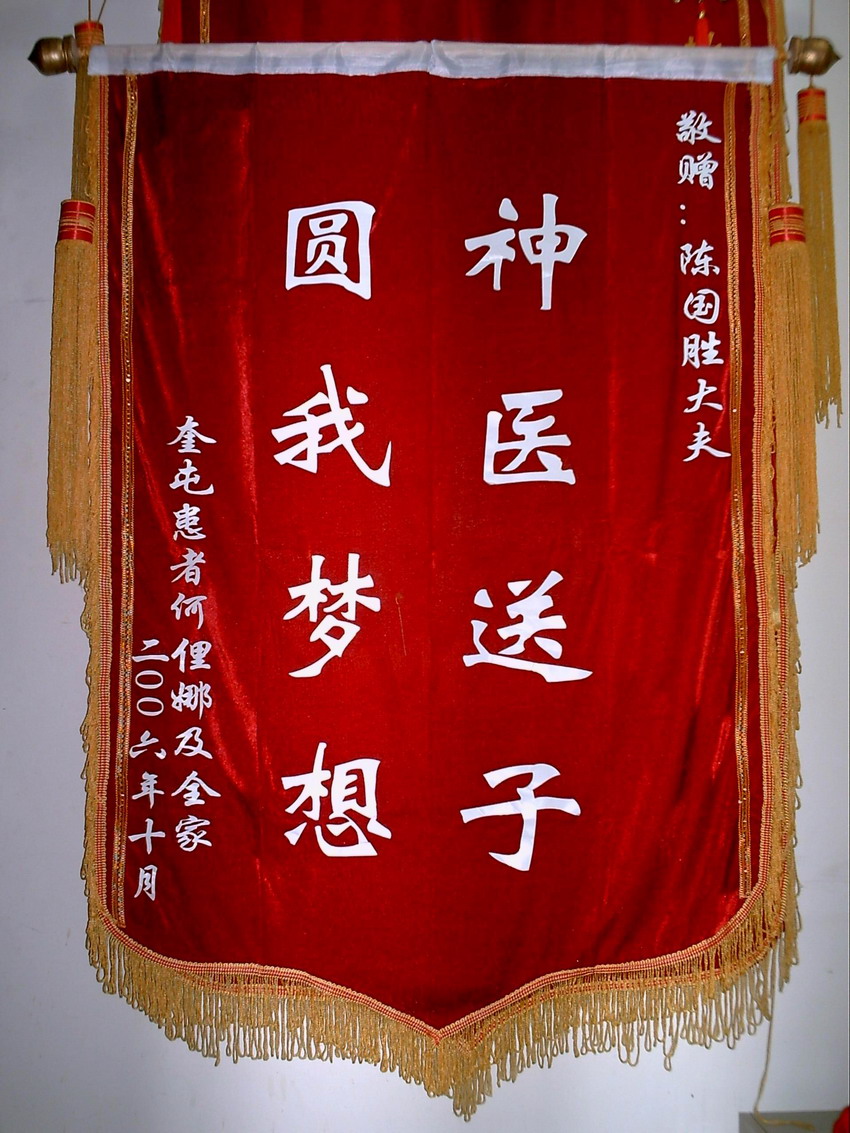 敬赠：陈国胜大夫
神医送子
圆我梦想
奎屯患者何俚娜及全家
二〇〇六年十月